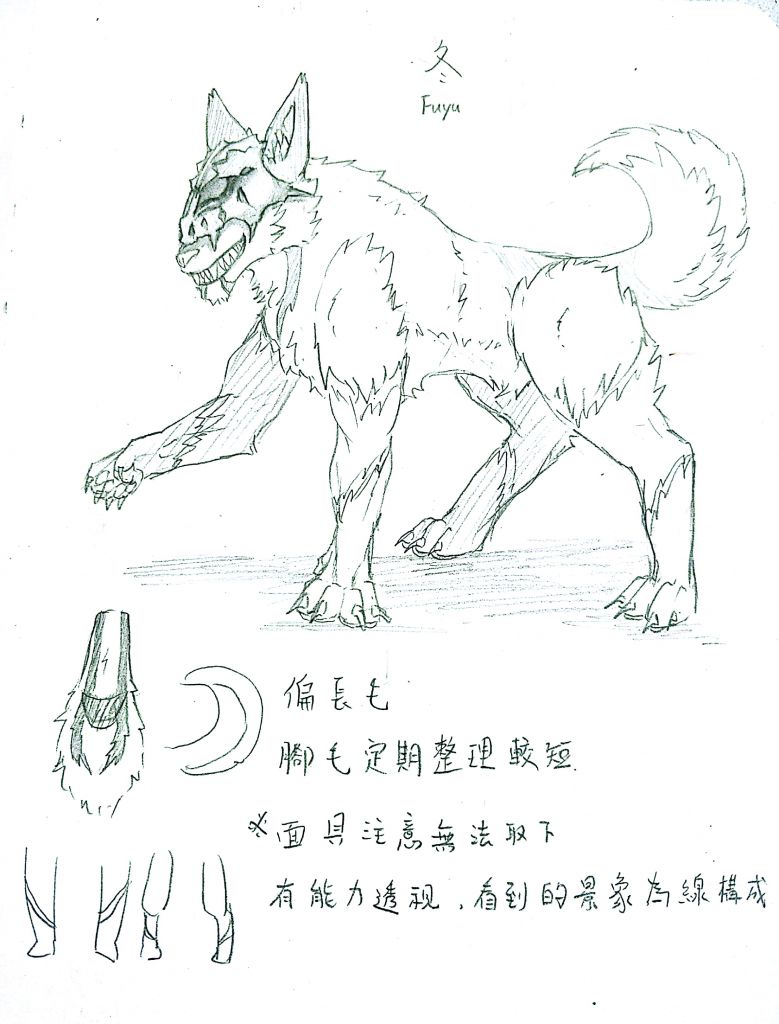 冬
Fuyu
偏長毛
腳毛定期整理較短.
※面具注意無法取下
有能力透視，看到的景象為線構成